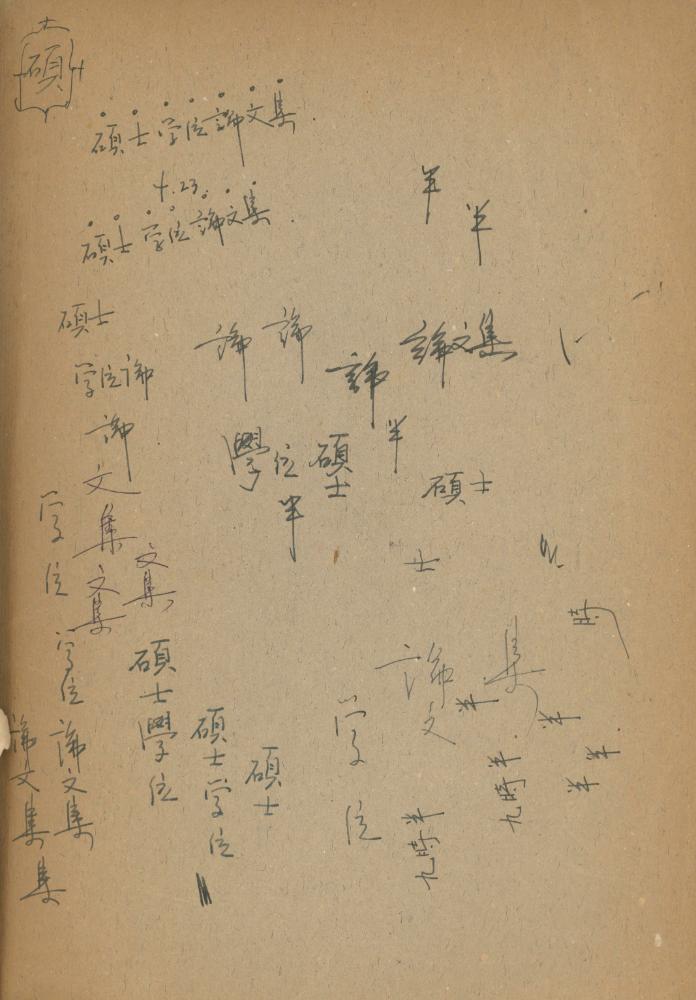 碩
碩士学位論文集.
4.23.
碩士学位論文集.
半
半
碩士
学位論
論
文
集
文集
文集
学位
学位
論文集
論文集
集
論
論
論
論文集
學位碩士
半
半
碩士
士
碩士學位
碩士学位
碩士
論文
集
学位
時
半
半
半
半
九時半
九時半